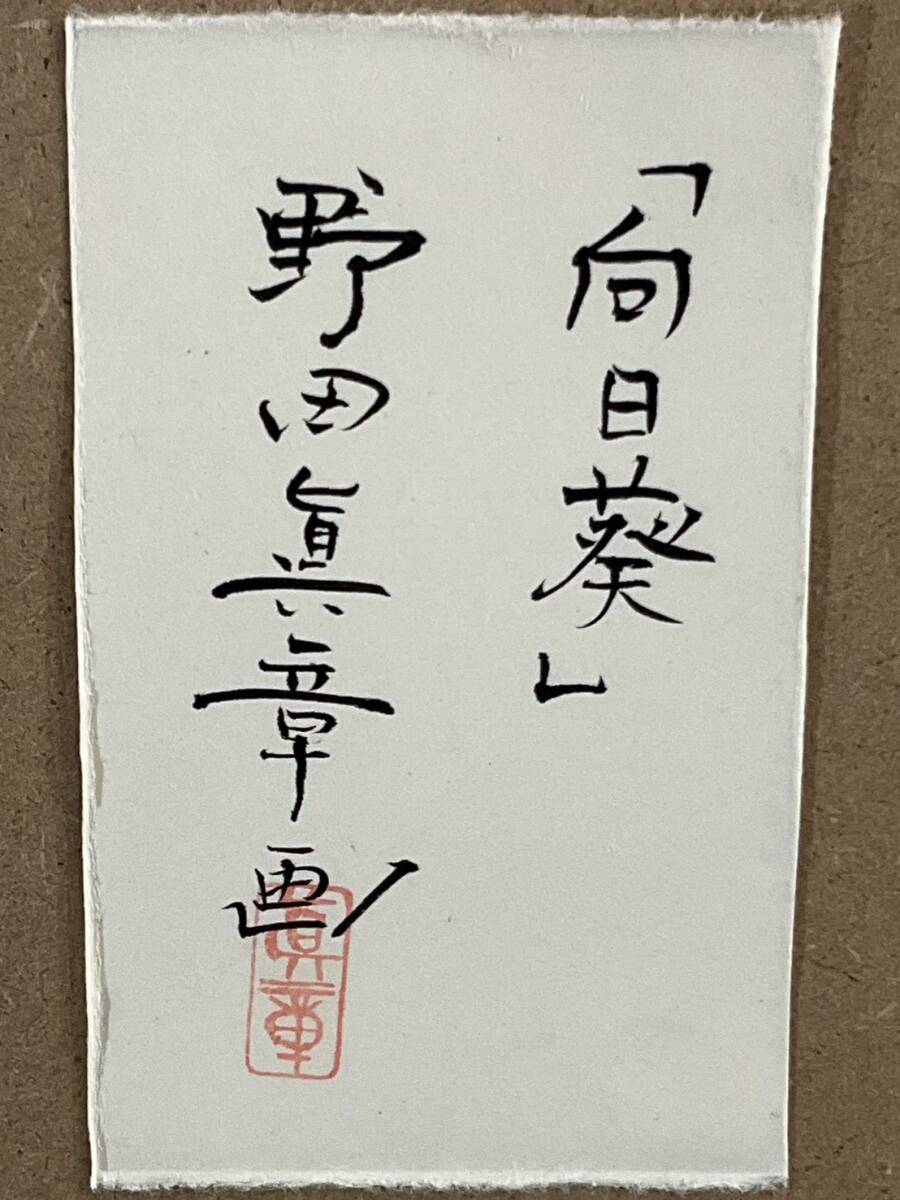 「向日葵」
野田眞章画
眞章